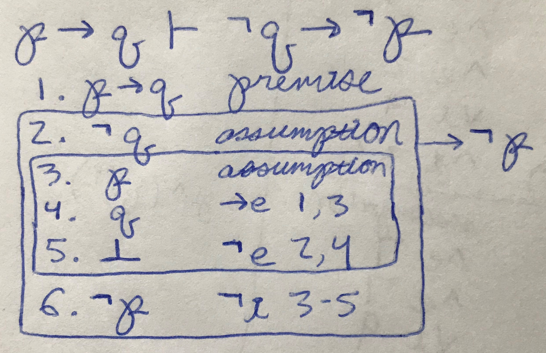 p → q ⊢ ¬q → ¬p
1. p → q premise
2. ¬q assumption → ¬p
3. p assumption
4. q →e 1,3
5. ⊥ ¬e 2,4
6. ¬p ¬i 3-5